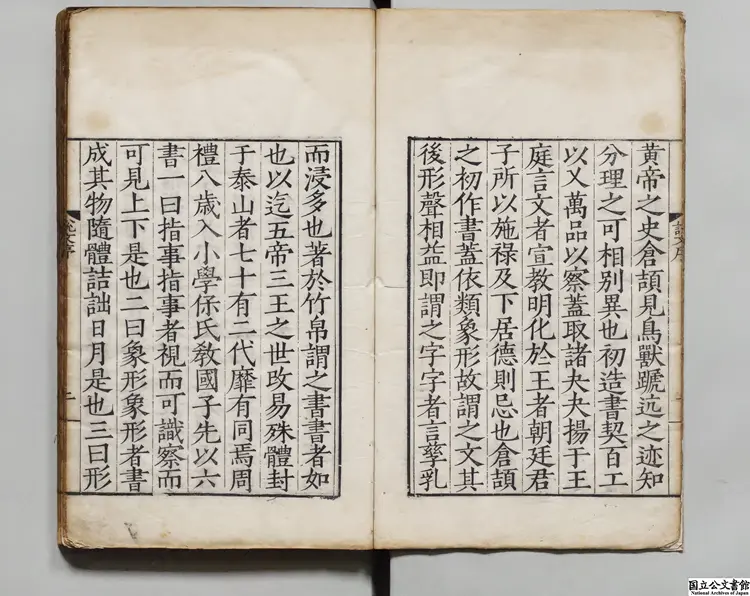 黃帝之史倉頡見鳥獸蹏迒之迹知
分理之可相別異也初造書契百工
以乂萬品以察蓋取諸夬夬揚于王
庭言文者宣教明化於王者朝廷君
子所以施祿及下居德則忌也倉頡
之初作書蓋依類象形故謂之文其
後形聲相益即謂之字字者言孳乳
而浸多也著於竹帛謂之書書者如
也以迄五帝三王之世改易殊體封
于泰山者七十有二代靡有同焉周
禮八歲入小學保氏教國子先以六
書一曰指事指事者視而可識察而
可見上下是也二曰象形象形者書
成其物隨體詰詘日月是也三曰形
説文序
二
国立公文書館
National Archives of Japan